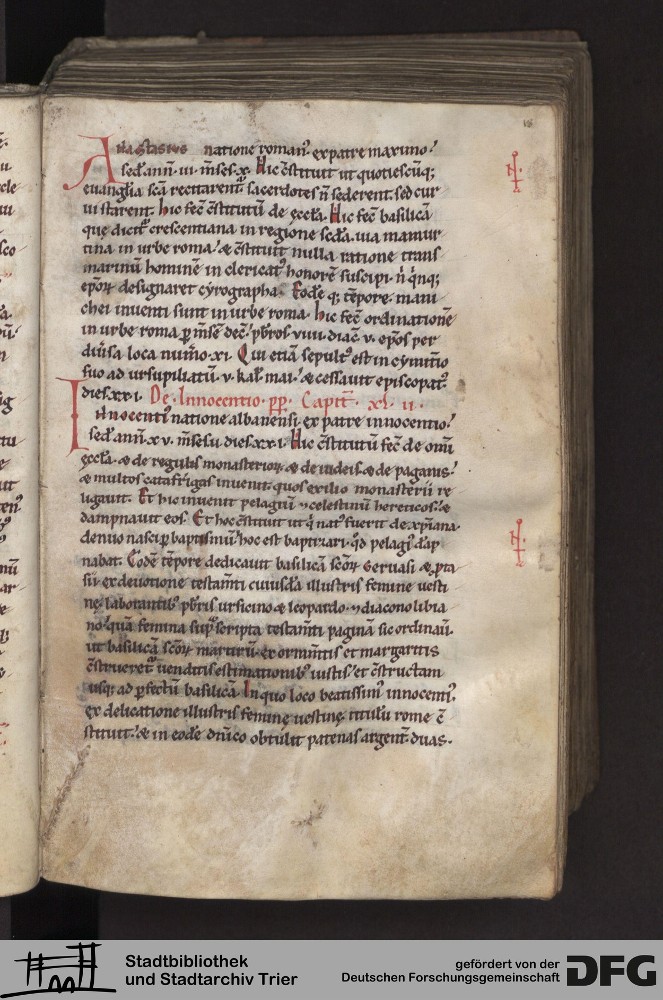 18
Anastasius natione roman᷒. ex patre maximo.
sed̄. ann̄. iii. m̄ses. x. Hic c̄stituit ut quotienscūq;
euangl̄ia sc̄a recitarent᷒. sacerdotes n̄ sederent. sed cur
ui starent. Hic fec̄ c̄stitutū de ęccl̄a. Hic fec̄ basilicā
que dicit᷒ crescentiana in regione scd̄a. uia mamur
tina in urbe roma. & c̄stituit nulla ratione trans
marinū hominē in clericat᷒ honorē suscipi. n̄ qnq;
epōꝝ designaret cyrographa. Eodē q; tēpore. mani
chei inuenti sunt in urbe roma. Hic fec̄ ordinationē
in urbe roma p̄ m̄sē dec̄. pb̄ros. viiii. diac̄. v. epōs per
diūsa loca num̄o. xi. Qui etiā sepult᷒ est in cymit̄io
suo ad ursūpiliatū. v. kal̄. mai. & cessauit episcopat᷒.
dies. xxi. De. Innocentio. pp. Capit̄. xl. ii.
Innocenti᷒ natione albanensi. ex patre innocentio.
sed̄. ann̄. xv. m̄ses. ii. dies. xxi. Hic c̄stitutū fec̄ de om̄i
ęccl̄a. & de regulis monasterioꝝ. & de iudeis. & de paganis.
& multos catafrigas inuenit. quos exilio monasterii re
ligauit. Et hic inuenit pelagiū ⁊ celestinū hereticos. &
dampnauit eos. Et hoc c̄stituit ut q nat᷒ fuerit de xp̄iana
denuo nasci p baptismū. hoc est baptizari. qd̄ pelagi᷒ dāp
nabat. Eodē tēpore dedicauit basilicā sc̄oꝝ Geruasi & pta
sii. ex deuotione testam̄ti cuiusdā illustris femine uesti
nę. laborantib᷒ pb̄ris ursicino & leopardo. ⁊ diacono libia
no. quā femina sup᷒scripta testam̄ti paginā sic ordinauit.
ut basilicā sc̄oꝝ martirū. ex ornam̄tis et margaritis
c̄strueret᷒. uenditis estimationib᷒ iustis. et c̄structam
usq; ad pfectū basilicā. In quo loco beatissim᷒ innocenti᷒.
ex delicatione illustris feminę uestinę. titulū rome c̄
stituit. & in eodē dn̄ico obtulit patenas argent̄. duas.
Stadtbibliothek
und Stadtarchiv Trier
gefördert von der
Deutschen Forschungsgemeinschaft
DFG